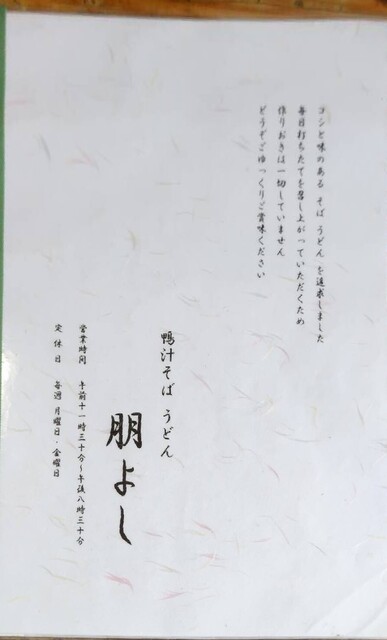 コシと味のある そば うどん を追求しました
毎日打ちたてを召し上がっていただくため
作りおきは一切していません
どうぞごゆっくりご賞味ください
鴨汁そば うどん
朋よし
営業時間 午前十一時三十分～午後八時三十分
定休日 毎週 月曜日・金曜日